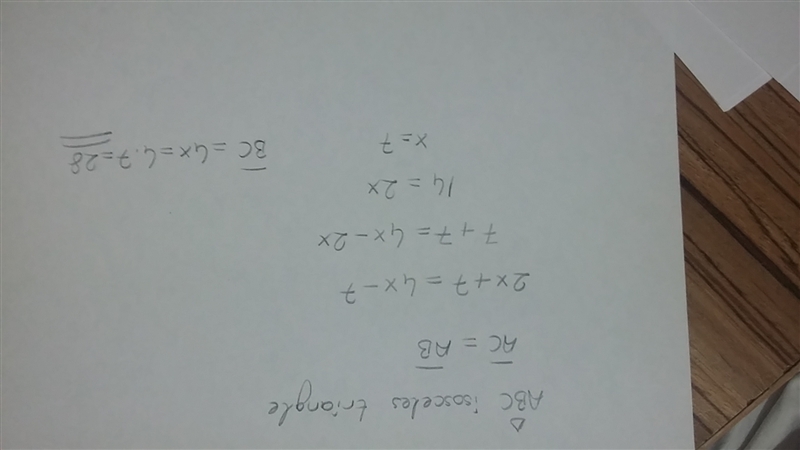 △ABC isosceles triangle
A̅C̅ = A̅B̅
2x+7 = 4x-7
7+7 = 4x-2x
14 = 2x
x=7
B̅C̅ = 4x=4.7=28